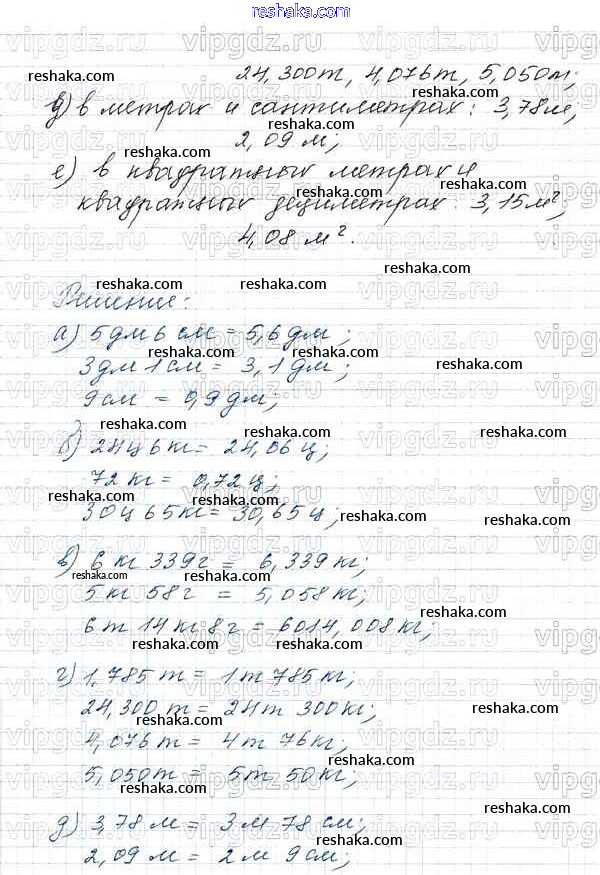 www.reshaka.com
24,300т, 4,076т, 5,050т;
д) в метрах и сантиметрах: 3,78м;
2,09 м;
е) в квадратных метрах и
квадратных дециметрах: 3,15м²;
4,08 м².
Решение:
а) 5дм 6 см = 5,6 дм;
3дм 1см = 3,1 дм;
9см = 0,9 дм;
б) 24ц 6кг = 24,06 ц;
72 кг = 0,72 ц;
30ц 65кг = 30,65 ц;
в) 6 кг 339г = 6,339 кг;
5 кг 58г = 5,058 кг;
6т 14кг 8г = 6014,008кг;
г) 1,785 т = 1т 785 кг;
24,300 т = 24т 300кг;
4,076т = 4т 76кг;
5,050т = 5т 50кг;
д) 3,78 м = 3м 78 см;
2,09 м = 2м 9см;